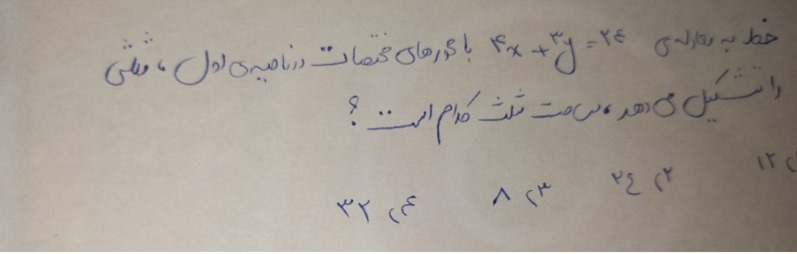 خط به معادله‌ی ۴x + ۳y = ۲۴ با محورهای مختصات در ناحیه‌ی اول، مثلثی
را تشکیل می دهد، مساحت مثلث کدام است؟
۱) ۱۲ ۲) ۲۴ ۳) ۸ ۴) ۳۲